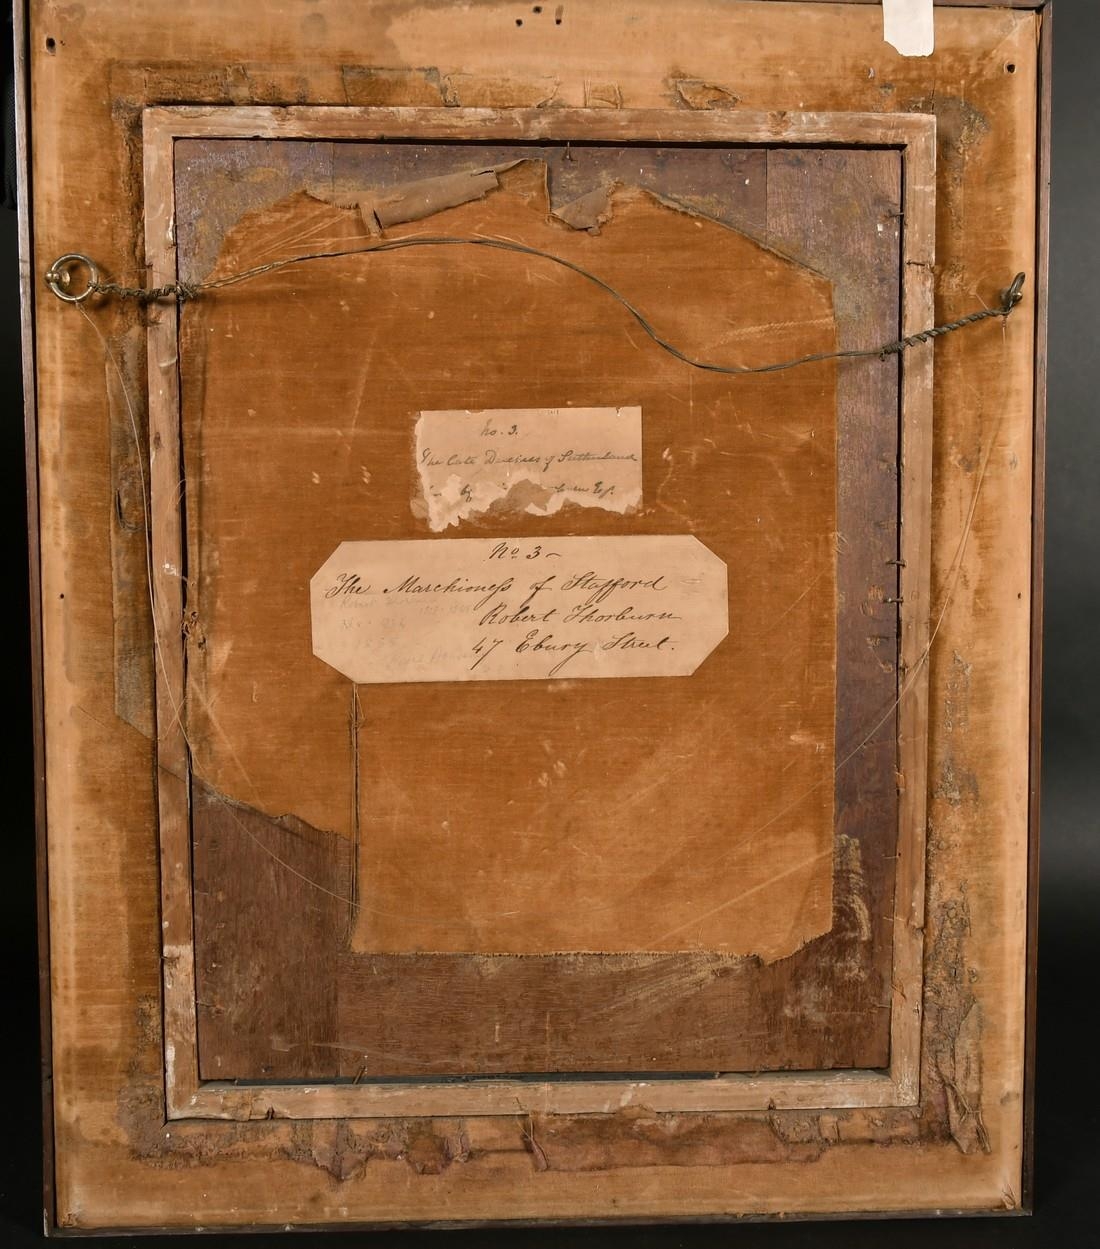 No. 3.
The late Duchess of Sutherland
by Esq.
No 3 ~
The Marchioness of Stafford
Robert Thorburn
47 Ebury Street.
Robert